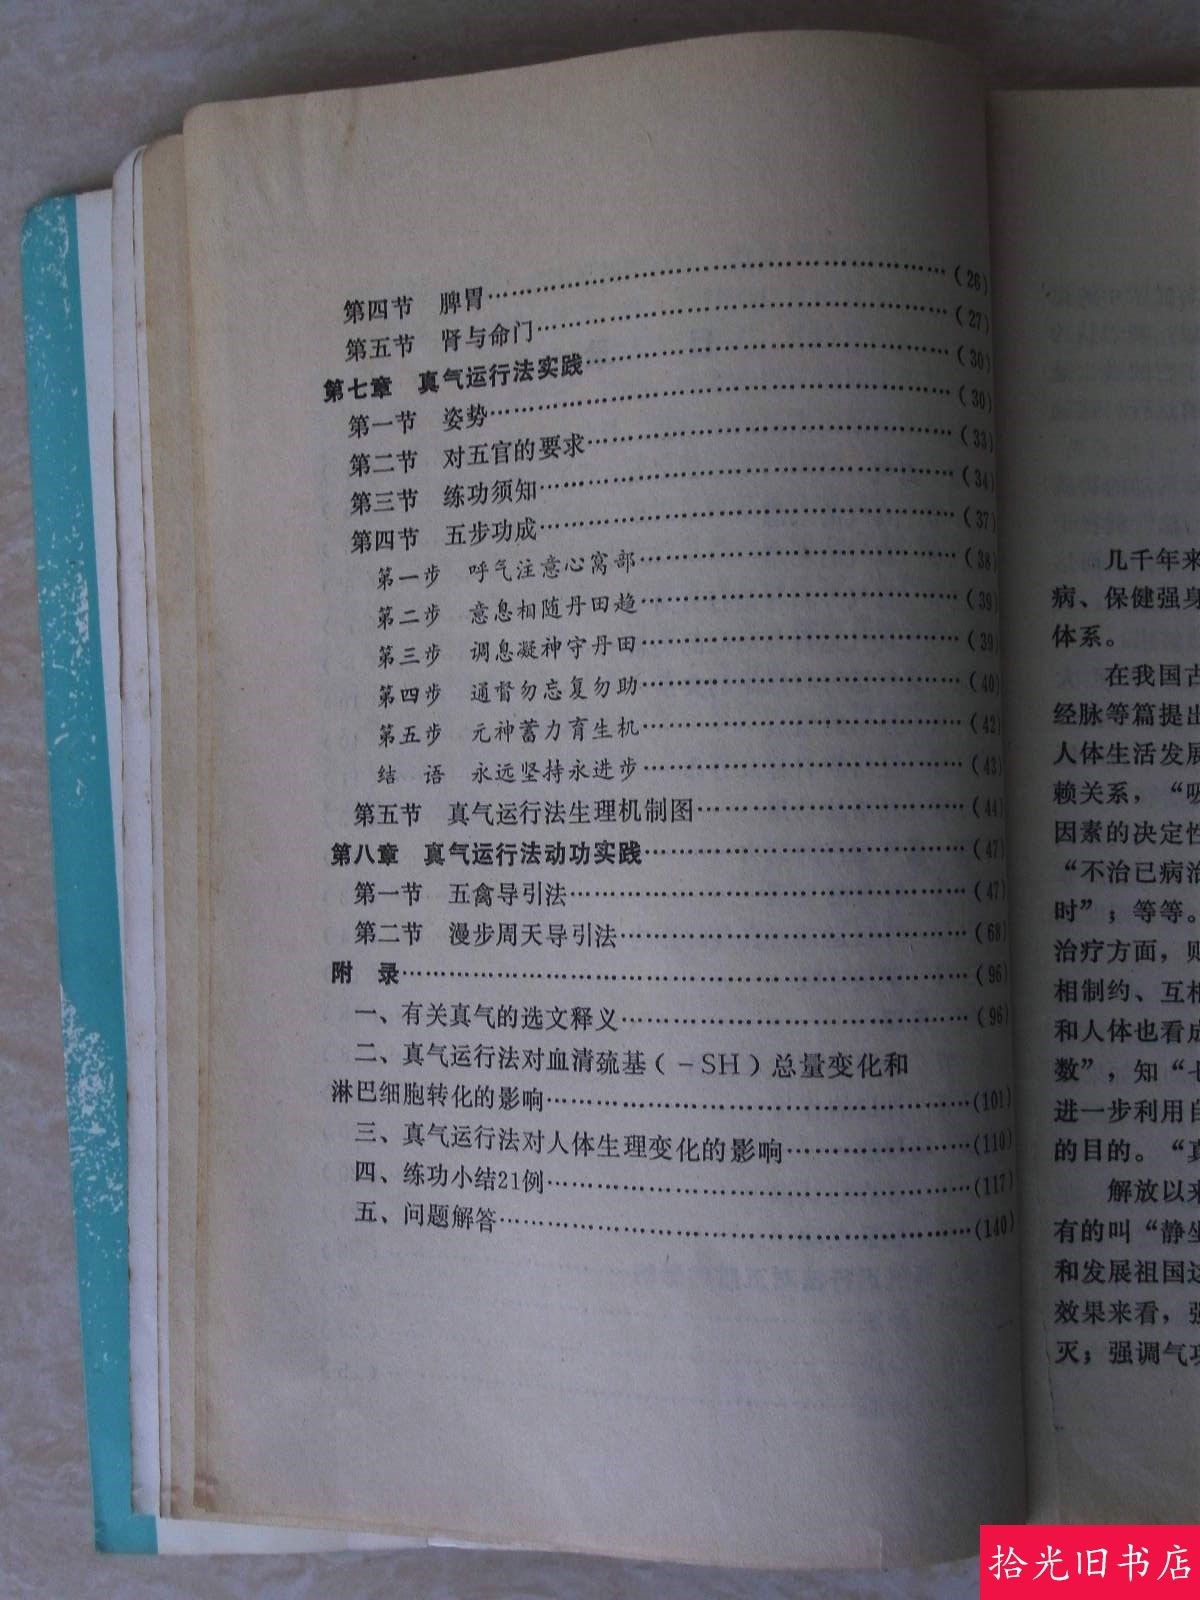 第四节 脾胃……(26)
第五节 肾与命门……(27)
第七章 真气运行法实践……(30)
第一节 姿势……(30)
第二节 对五官的要求……(33)
第三节 练功须知……(34)
第四节 五步功成……(37)
第一步 呼气注意心窝部……(38)
第二步 意息相随丹田趋……(39)
第三步 调息凝神守丹田……(39)
第四步 通督勿忘复勿助……(40)
第五步 元神蓄力育生机……(42)
结 语 永远坚持永进步……(43)
第五节 真气运行法生理机制图……(44)
第八章 真气运行法动功实践……(47)
第一节 五禽导引法……(47)
第二节 漫步周天导引法……(68)
附 录……(96)
一、有关真气的选文释义……(96)
二、真气运行法对血清巯基(-SH)总量变化和
淋巴细胞转化的影响……(101)
三、真气运行法对人体生理变化的影响……(110)
四、练功小结21例……(117)
五、问题解答……(140)
几千年来
病、保健强身
体系。
在我国古
经脉等篇提出
人体生活发展
赖关系，“呼
因素的决定性
“不治已病治
时”；等等。
治疗方面，则
相制约、互相
和人体也看成
数”，知“七
进一步利用自
的目的。“真
解放以来
有的叫“静坐
和发展祖国这
效果来看，强
灭；强调气功
拾光旧书店